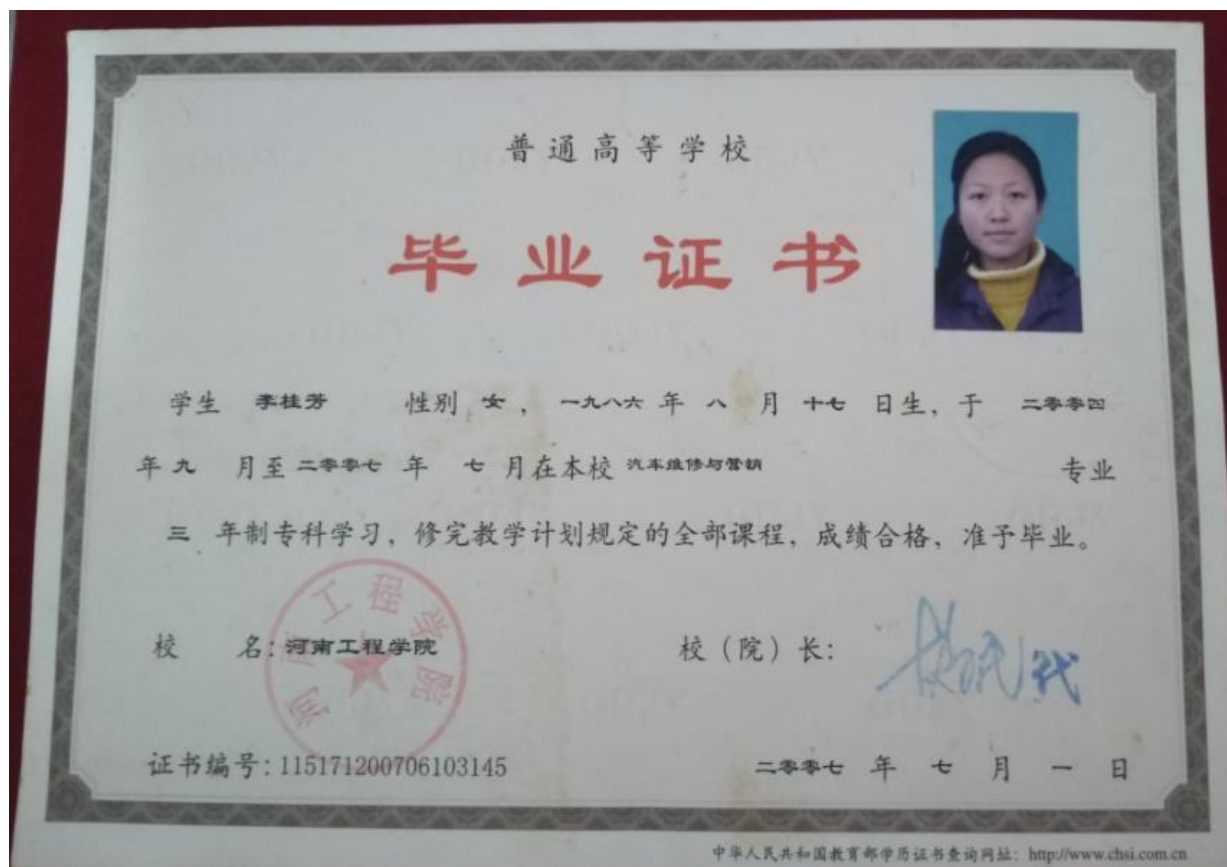 普通高等学校
毕业证书
学生 李桂芳 性别 女，一九八六 年 八 月 十七 日生，于 二零零四
年 九 月至 二零零七 年 七 月在本校 汽车维修与营销 专业
三 年制专科学习，修完教学计划规定的全部课程，成绩合格，准予毕业。
校 名：河南工程学院 校（院）长：
河南工程学院
证书编号：115171200706103145 二零零七 年 七 月 一 日
中华人民共和国教育部学历证书查询网址：http://www.chsi.com.cn